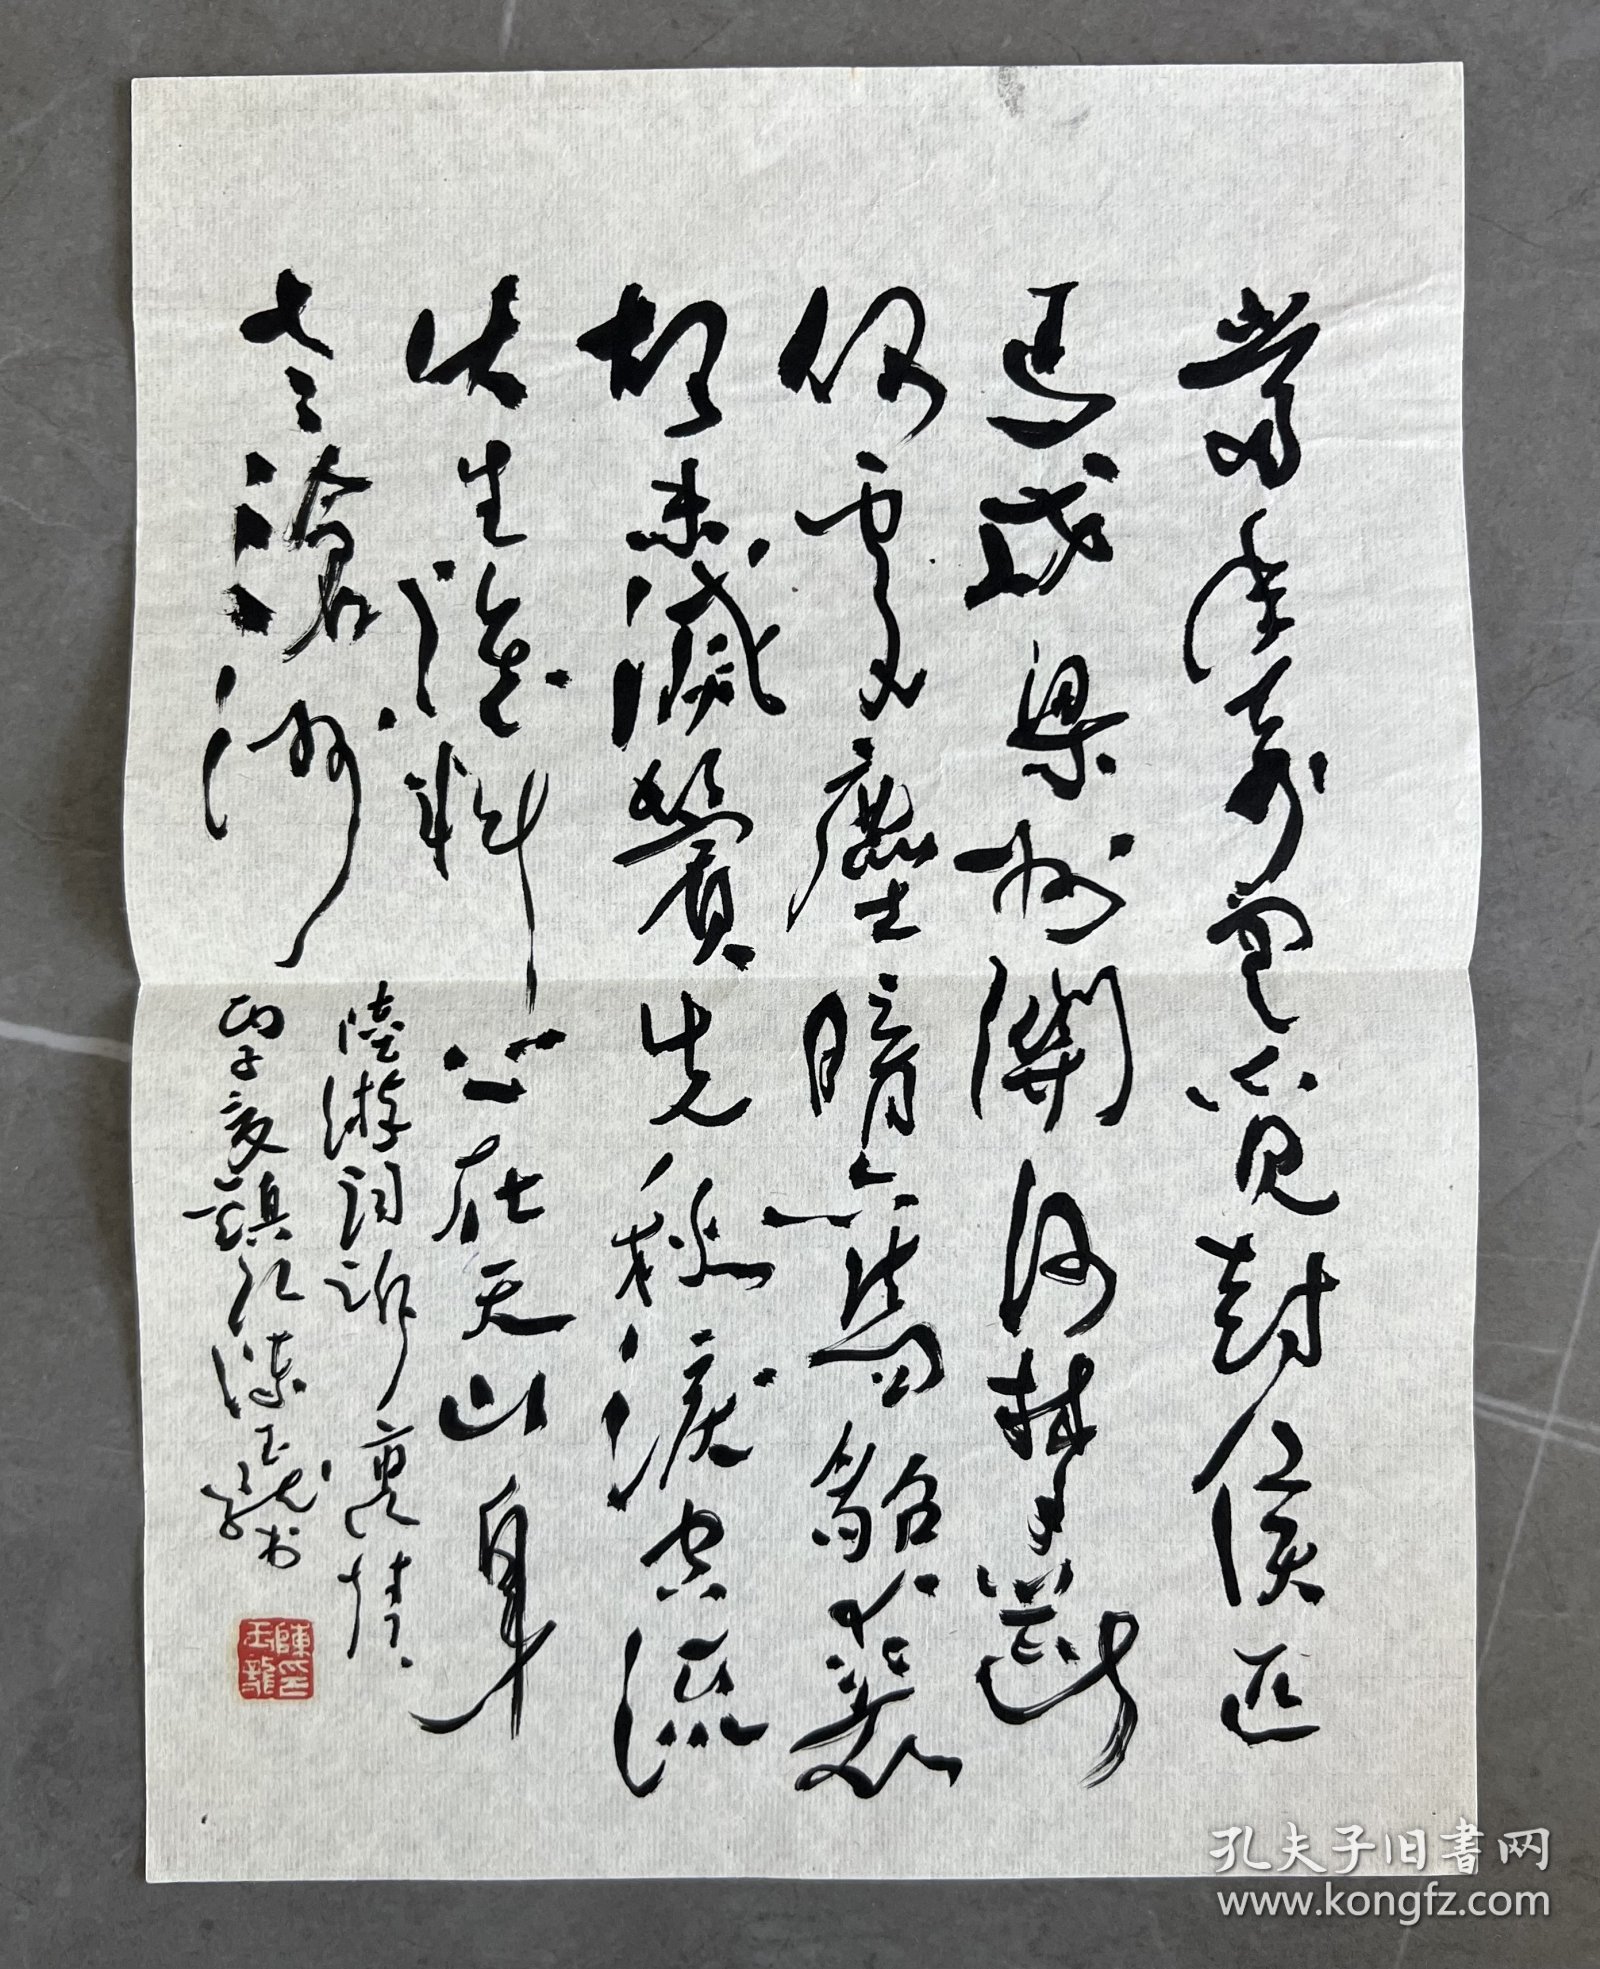 當年萬里覓封侯匹
馬戍梁州關河梦斷
何處塵暗舊貂裘
胡未滅鬢先秋淚空流
此生誰料心在天山身
老滄洲
陸游詞訴衷情
丙子夏鎮江陳玉龍书
陳印
玉龍
孔夫子旧書网
www.kongfz.com